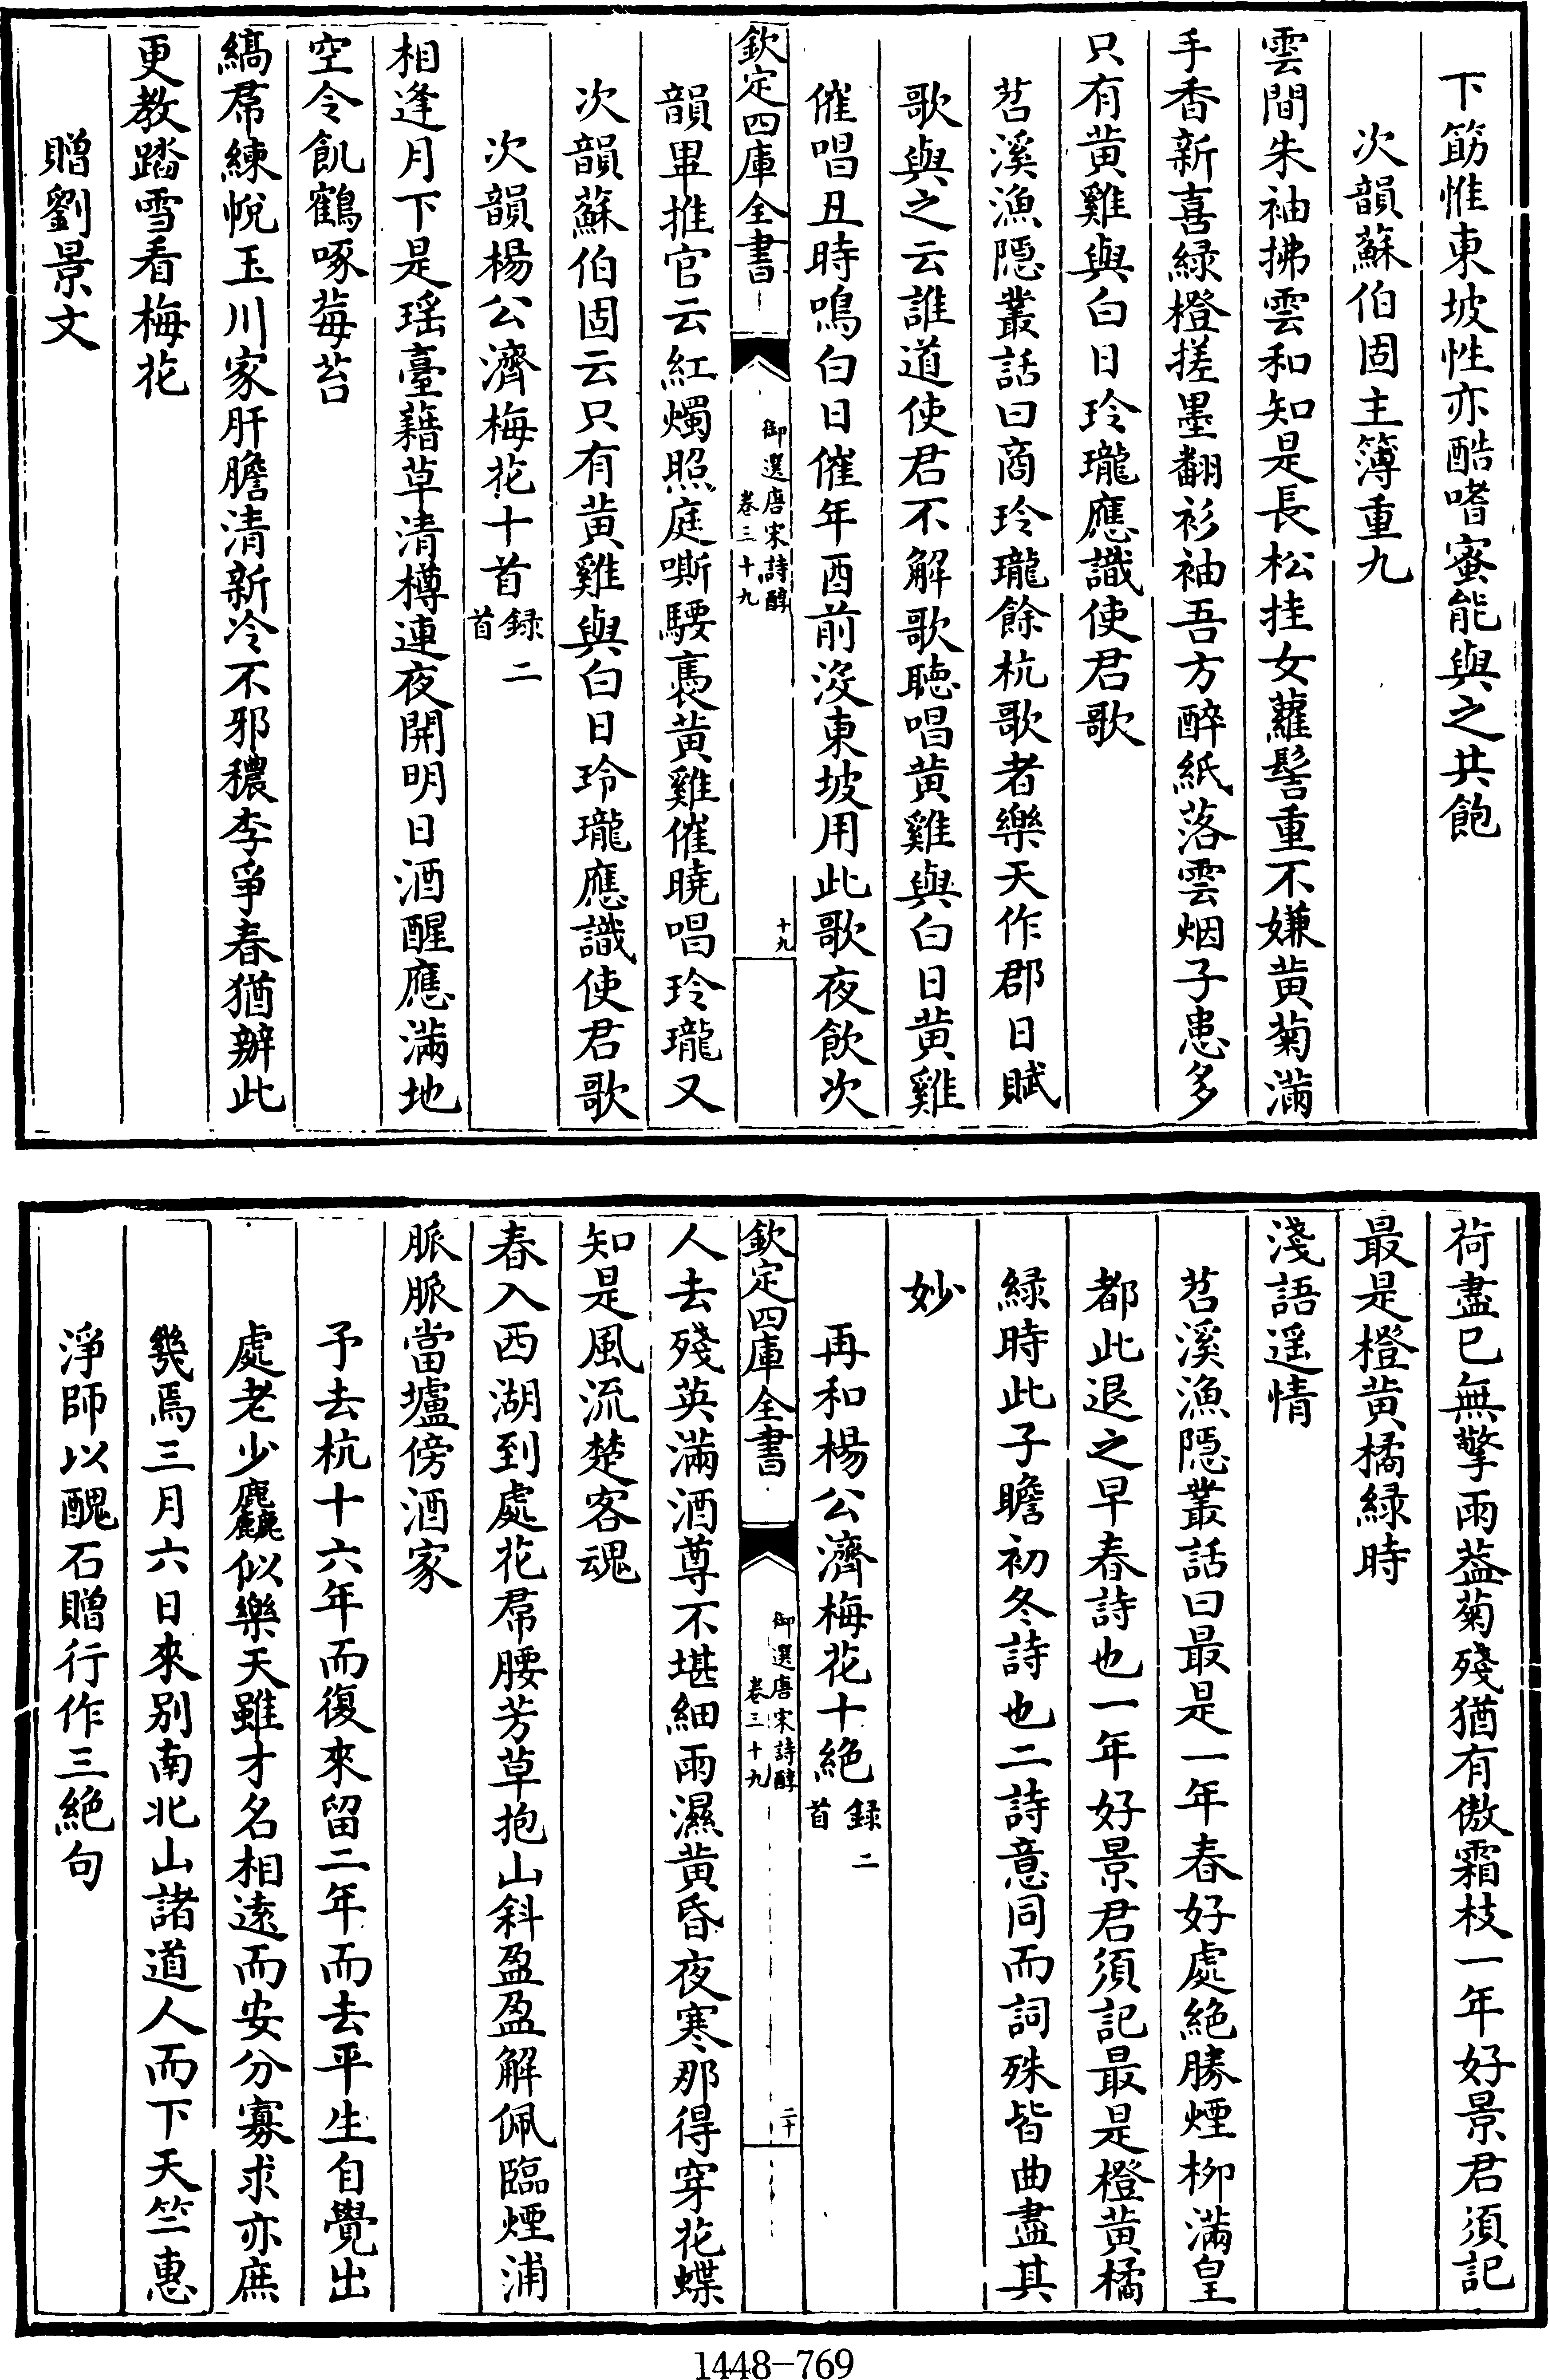 下筯惟東坡性亦酷嗜蜜能與之共飽
次韻蘇伯固主簿重九
雲間朱袖拂雲和知是長松挂女蘿髻重不嫌黄菊滿
手香新喜緑橙搓墨翻衫袖吾方醉紙落雲烟子患多
只有黄雞與白日玲瓏應識使君歌
苕溪漁隠叢話曰商玲瓏餘杭歌者樂天作郡日賦
歌與之云誰道使君不解歌聴唱黄雞與白日黄雞
催唱丑時鳴白日催年酉前没東坡用此歌夜飲次
欽定四庫全書
御選唐宋詩醇
卷三十九
十九
韻畢推官云紅燭照庭嘶騕褭黄雞催曉唱玲瓏又
次韻蘇伯固云只有黄雞與白日玲瓏應識使君歌
次韻楊公濟梅花十首録二首
相逢月下是瑶臺藉草清樽連夜開明日酒醒應滿地
空令飢鶴啄莓苔
縞帬練帨玉川家肝膽清新冷不邪穠李爭春猶辦此
更教踏雪看梅花
贈劉景文
荷盡已無擎雨葢菊殘猶有傲霜枝一年好景君須記
最是橙黄橘緑時
淺語遥情
苕溪漁隠叢話曰最是一年春好處絶勝煙柳滿皇
都此退之早春詩也一年好景君須記最是橙黄橘
緑時此子瞻初冬詩也二詩意同而詞殊皆曲盡其
妙
再和楊公濟梅花十絶録二首
欽定四庫全書
御選唐宋詩醇
卷三十九
二十
人去殘英滿酒尊不堪細雨濕黄昏夜寒那得穿花蝶
知是風流楚客魂
春入西湖到處花帬腰芳草抱山斜盈盈解佩臨煙浦
脈脈當壚傍酒家
予去杭十六年而復來留二年而去平生自覺出
處老少麤似樂天雖才名相逺而安分寡求亦庶
幾焉三月六日來别南北山諸道人而下天竺惠
淨師以醜石贈行作三絶句
1448-769